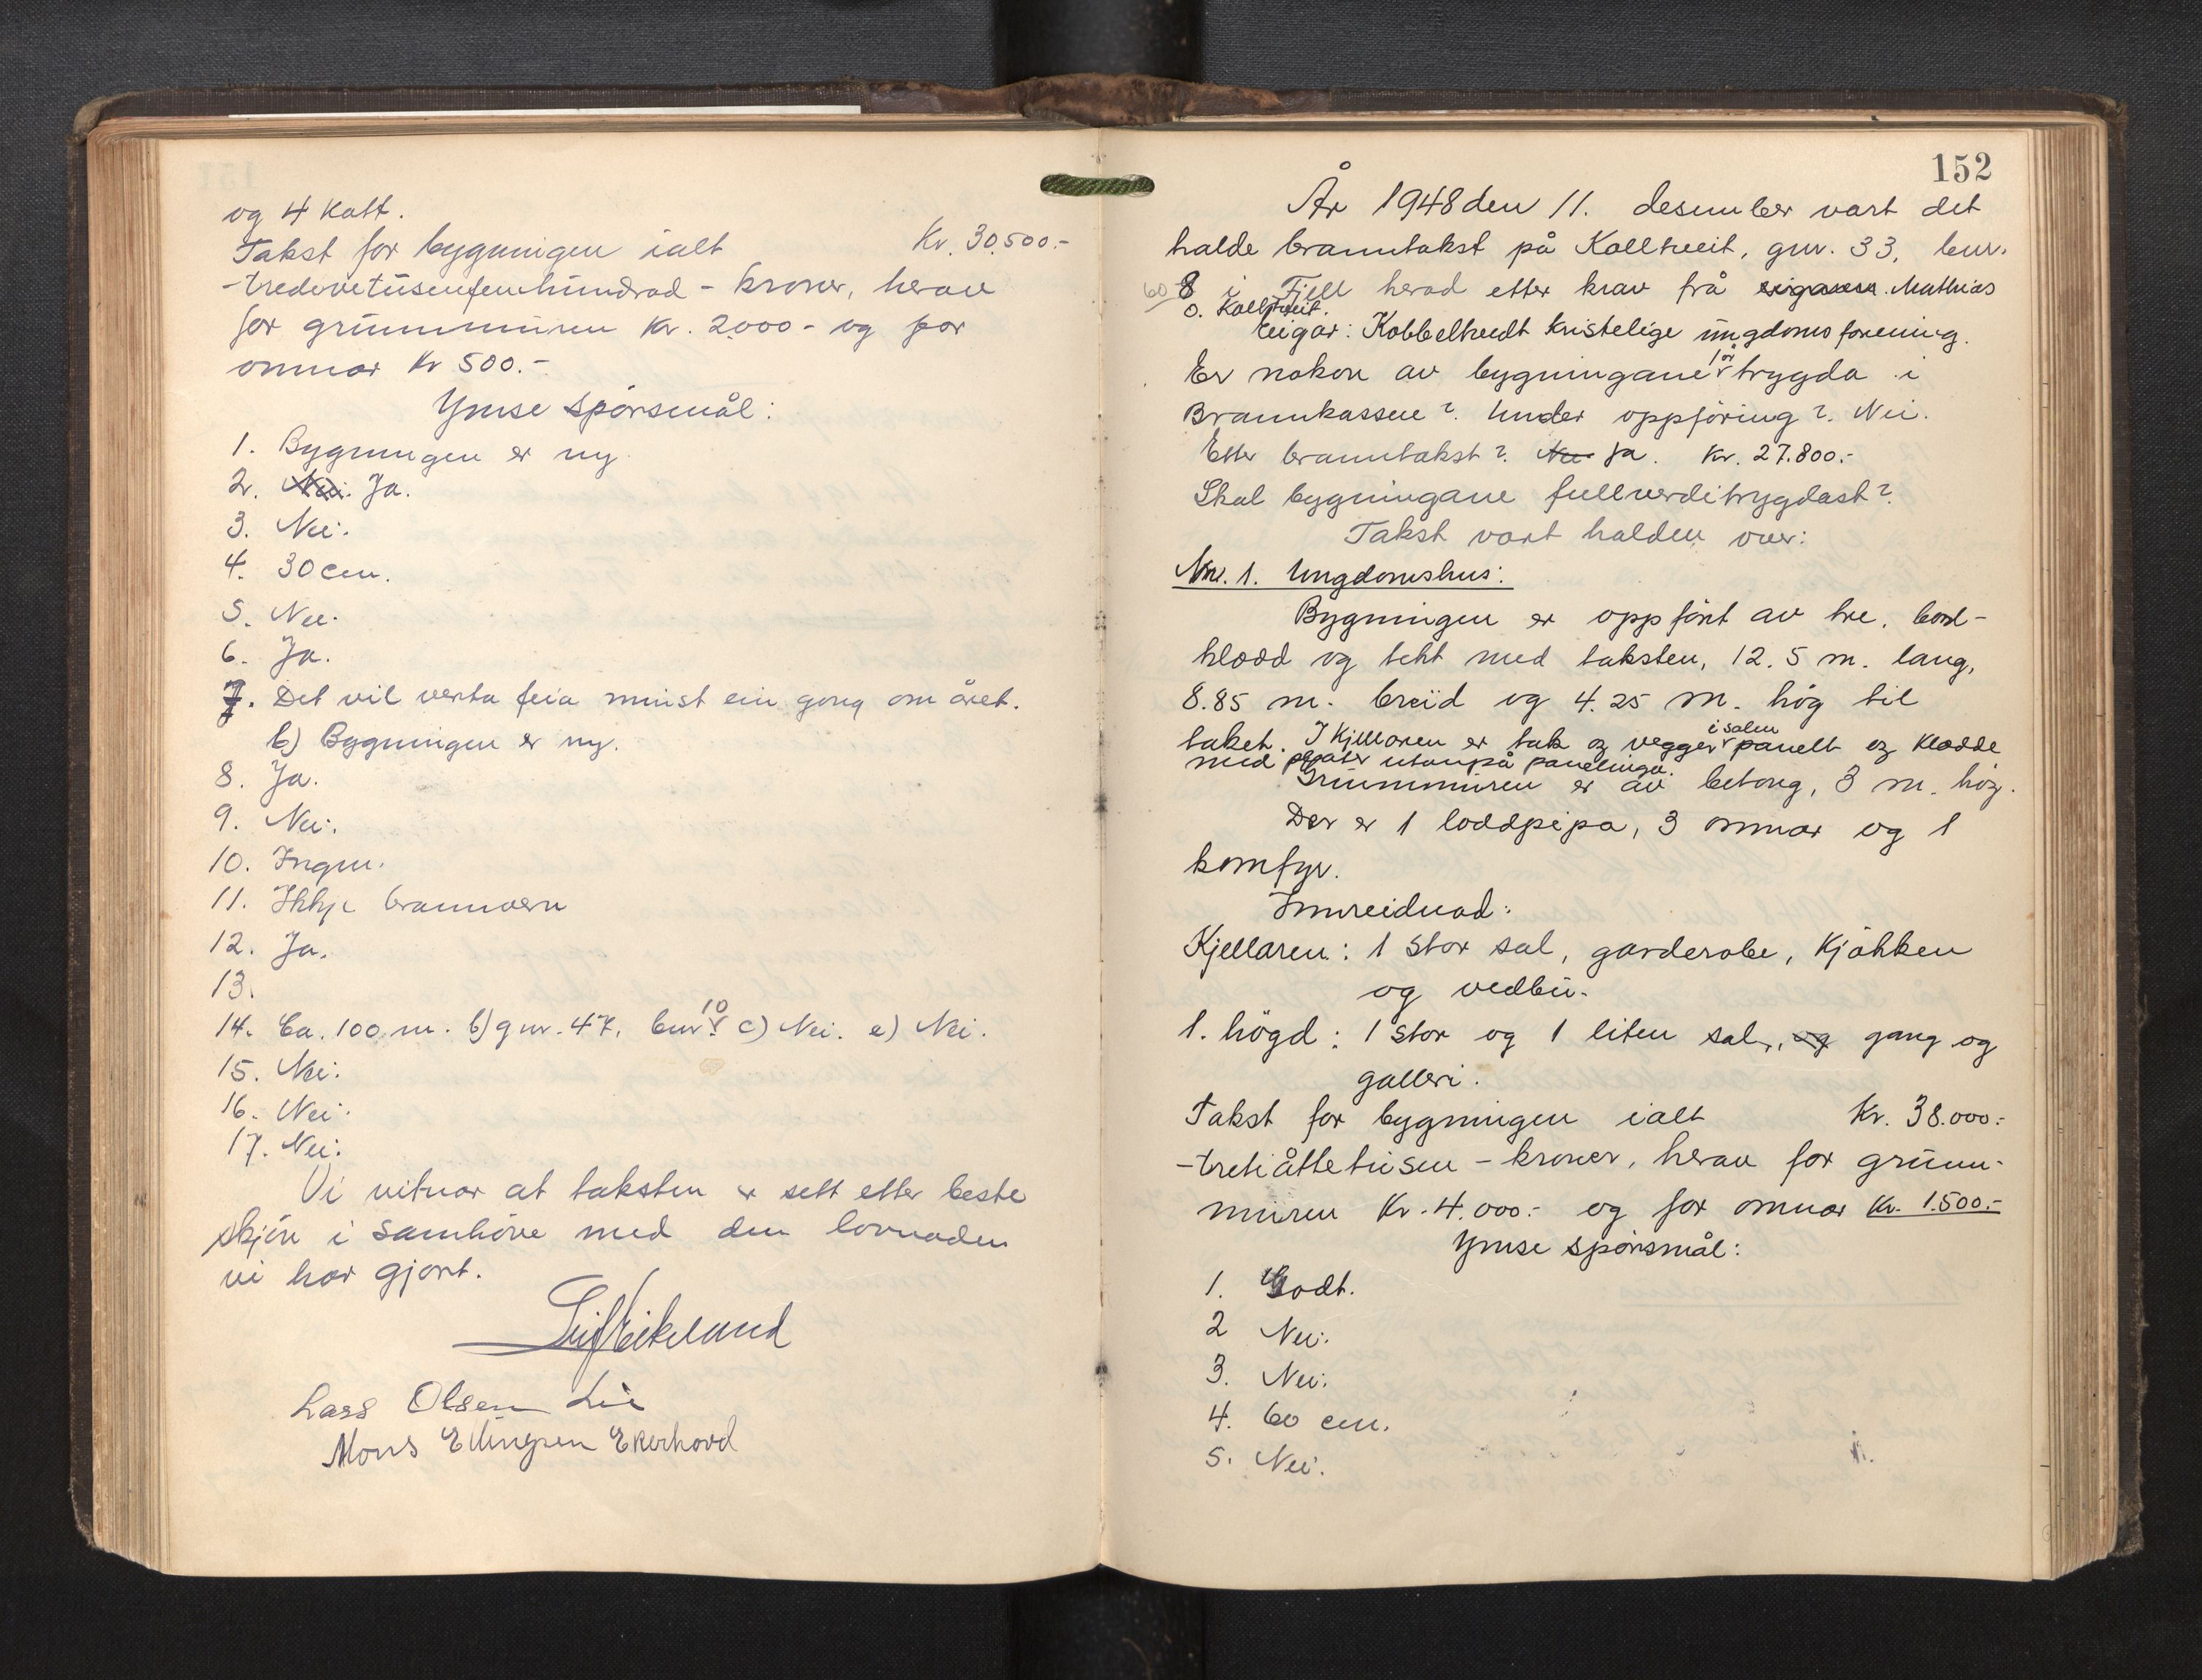 og 4 kott.
Takst for bygningen ialt Kr. 30.500.-
-tredvetusenfemhundrad - kroner, herav
for grunnmuren kr. 2000.- og for
omnar kr 500.-
Ymse spörsmål:
1. Bygningen er ny
2. Nei. Ja.
3. Nei.
4. 30 cm.
5. Nei.
6. Ja.
7. Det vil verta feia minst ein gong om året.
b) Bygningen er ny.
8. Ja.
9. Nei.
10. Ingen.
11. Ikkje brannvern
12. Ja.
13.
14. Ca. 100 m. b) gnr. 47, bnr 10 c) Nei. e) Nei.
15. Nei.
16. Nei.
17. Nei.
Vi vitnar at taksten er sett etter beste
skjön i samhöve med den lovnaden
vi har gjort.
Leif Eikeland
Lars Olsen Lie
Mons Ellingsen Ekerhovd
152
År 1948 den 11. desember vart det
halde branntakst på Kolltveit, gnr. 33, bnr.
60 8 i Fjell herad etter krav frå eigaren Mathias
O. Kolltveit.
Eigar: Kobbeltvedt kristelige ungdomsforening.
Er nokon av bygningane för trygda i
Brannkassen? Under oppföring? Nei.
Etter branntakst? Nei Ja. Kr. 27.800.-
Skal bygningane fullverditrygdast?
Takst vart halden over:
Nr. 1. Ungdomshus:
Bygningen er oppfört av tre, bord-
kledd og tekt med taksten, 12.5 m. lang,
8.85 m. breid og 4.25 m. hög til
taket. I kjellaren er tak og vegger i salen panelt og kledde
med plater utanpå panelinga.
Grunnmuren er av betong, 3 m. hög.
Der er 1 loddpipa, 3 omnar og 1
komfyr.
Innreidnad:
Kjellaren: 1 stor sal, garderobe, kjökken
og vedbu.
1. högd: 1 stor og 1 liten sal, og gang og
galleri.
Takst for bygningen ialt Kr. 38.000.-
-tretiåttetusen - kroner, herav for grunn-
muren Kr. 4.000.- og for omnar Kr. 1.500.-
Ymse spörsmål:
1. Godt.
2 Nei.
3. Nei.
4. 60 cm.
5. Nei.